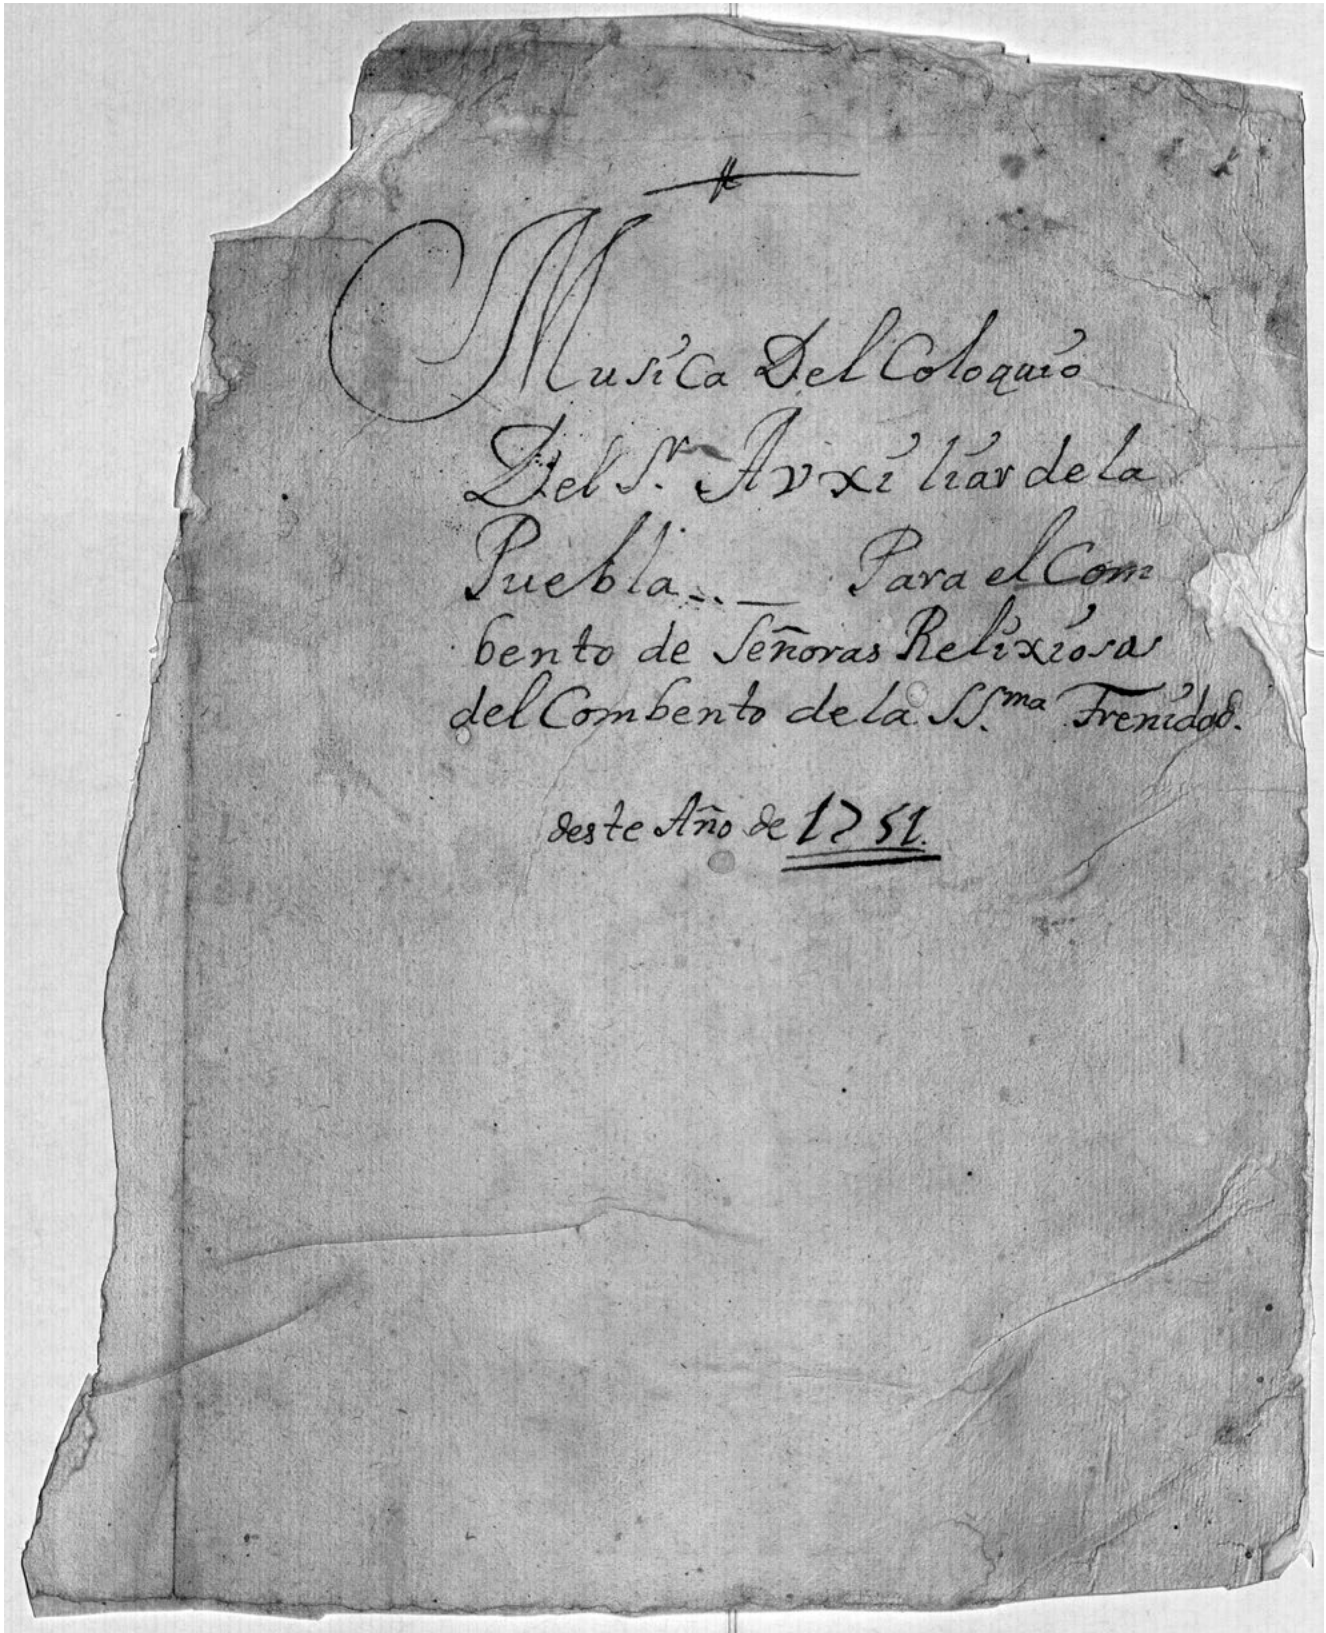 Musica Del Coloquio
Del Sr. Auxiliar de la
Puebla..— Para el Com
bento de Señoras Relixiosas
del Combento de la SS.ma Trenidad.
deste Año de 1751.